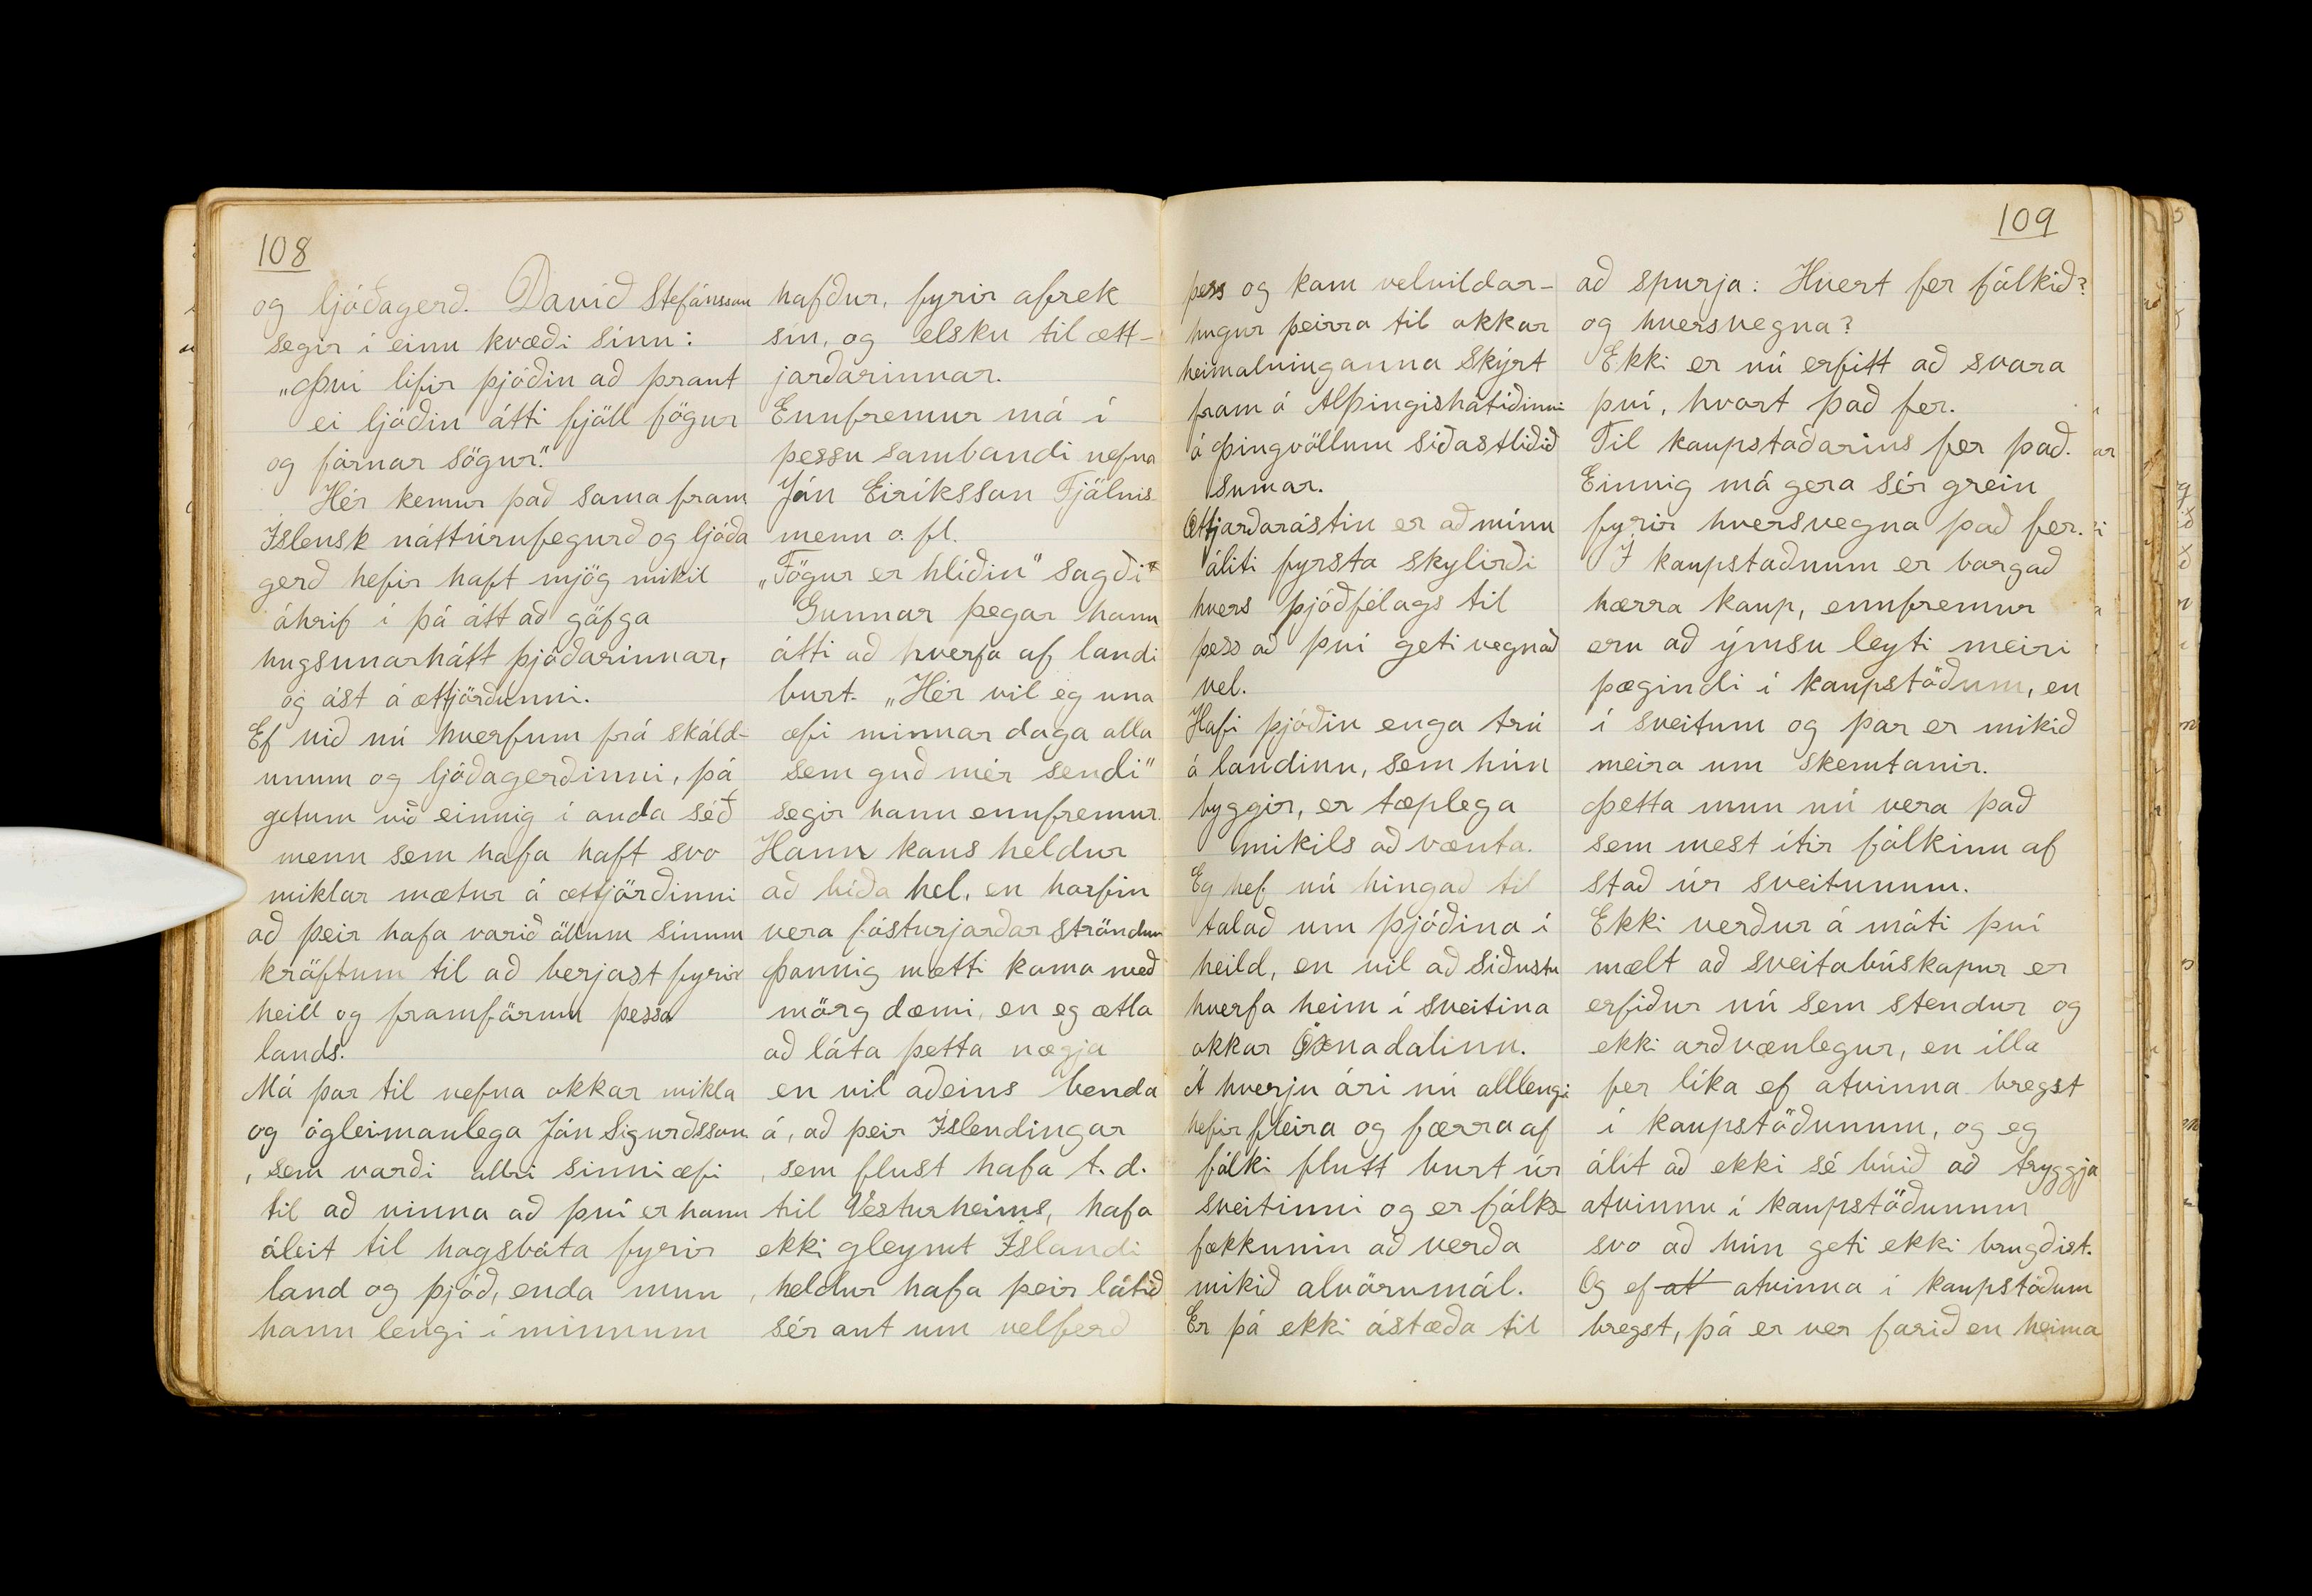 108
og ljóðagerð. Davíð Stefánsson
segir í einu kvæði sínu:
„Því lifir þjóðin að þraut
ei ljóðin átti fjöll fögur
og fórnar sögur."
Hér kemur það sama fram
Íslensk náttúrufegurð og ljóða
gerð hefir haft mjög mikil
áhrif í þá átt að göfga
hugsunarhátt þjóðarinnar,
og ást á ættjörðunni.
Ef við nú hverfum frá skáld-
unum og ljóðagerðinni, þá
getum við einnig í anda séð
menn sem hafa haft svo
miklar mætur á ættjörðinni
að þeir hafa varið öllum sínum
kröftum til að berjast fyrir
heill og framförum þessa
lands.
Má þar til nefna okkar mikla
og ógleimanlega Jón Sigurðsson
, sem varði allri sinni æfi
til að vinna að því er hann
áleit til hagsbóta fyrir
land og þjóð, enda mun
hann lengi í minnum
hafður, fyrir afrek
sín, og elsku til ætt-
jarðarinnar.
Ennfremur má í
þessu sambandi nefna
Jón Eiríksson Fjölnis
menn o. fl.
„Fögur er hlíðin" sagði
Gunnar þegar hann
átti að hverfa af landi
burt. „Hér vil ég una
æfi minnar daga alla
sem guð mér sendi"
segir hann ennfremur.
Hann kaus heldur
að bíða hel, en horfin
vera fósturjarðar ströndum
Þannig mætti koma með
mörg dæmi, en eg ætla
að láta þetta nægja
en vil aðeins benda
á, að þeir Íslendingar
, sem flust hafa t.d.
til Vesturheims, hafa
ekki gleymt Íslandi
, heldur hafa þeir látið
sér ant um velferð
109
þess og kom velvildar-
hugur þeirra til okkar
heimalninganna skýrt
fram á Alþingishátíðinni
á Þingvöllum síðastliðið
sumar.
Ættjarðarástin er að mínu
áliti fyrsta skylirði
hvers þjóðfélags til
þess að því geti vegnað
vel.
Hafi þjóðin enga trú
á landinu, sem hún
byggir, er tæplega
mikils að vænta.
Eg hef nú hingað til
talað um þjóðina í
heild, en vil að síðustu
hverfa heim í sveitina
okkar Öxnadalinn.
Á hverju ári nú alllengi
hefir fleira og færra af
fólki flutt burt úr
sveitinni og er fólks-
fækkunin að verða
mikið alvörumál.
Er þá ekki ástæða til
að spurja: Hvert fer fólkið?
og hversvegna?
Ekki er nú erfitt að svara
því, hvort það fer.
Til kaupstaðarins fer það.
Einnig má gera sér grein
fyrir hversvegna það fer.
Í kaupstaðnum er borgað
hærra kaup, ennfremur
eru að ýmsu leyti meiri
þægindi í kaupstöðum, en
í sveitum og þar er mikið
meira um skemtanir.
Þetta mun nú vera það
sem mest ítir fólkinu af
stað úr sveitunum.
Ekki verður á móti því
mælt að sveitabúskapur er
erfiður nú sem stendur og
ekki arðvænlegur, en illa
fer líka ef atvinna bregst
í kaupstöðunum, og eg
álít að ekki sé búið að tryggja
atvinnu í kaupstöðunum
svo að hún geti ekki brugðist.
Og ef at atvinna í kaupstöðum
bregst, þá er ver farið en heima